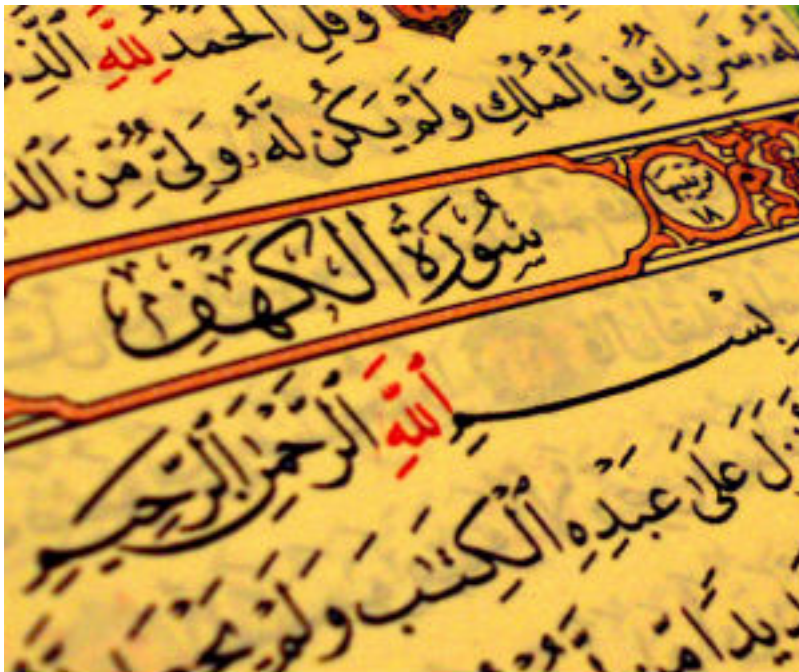 وَقُلِ ٱلْحَمْدُ لِلَّهِ
لَّهُۥ شَرِيكٌ فِى ٱلْمُلْكِ وَلَمْ يَكُن لَّهُۥ وَلِىٌّ مِّنَ
ترتيبها
١٨
سُورَةُ الكَهْفِ
بِسْمِ ٱللَّهِ ٱلرَّحْمَٰنِ ٱلرَّحِيمِ
عَلَىٰ عَبْدِهِ ٱلْكِتَٰبَ وَلَمْ